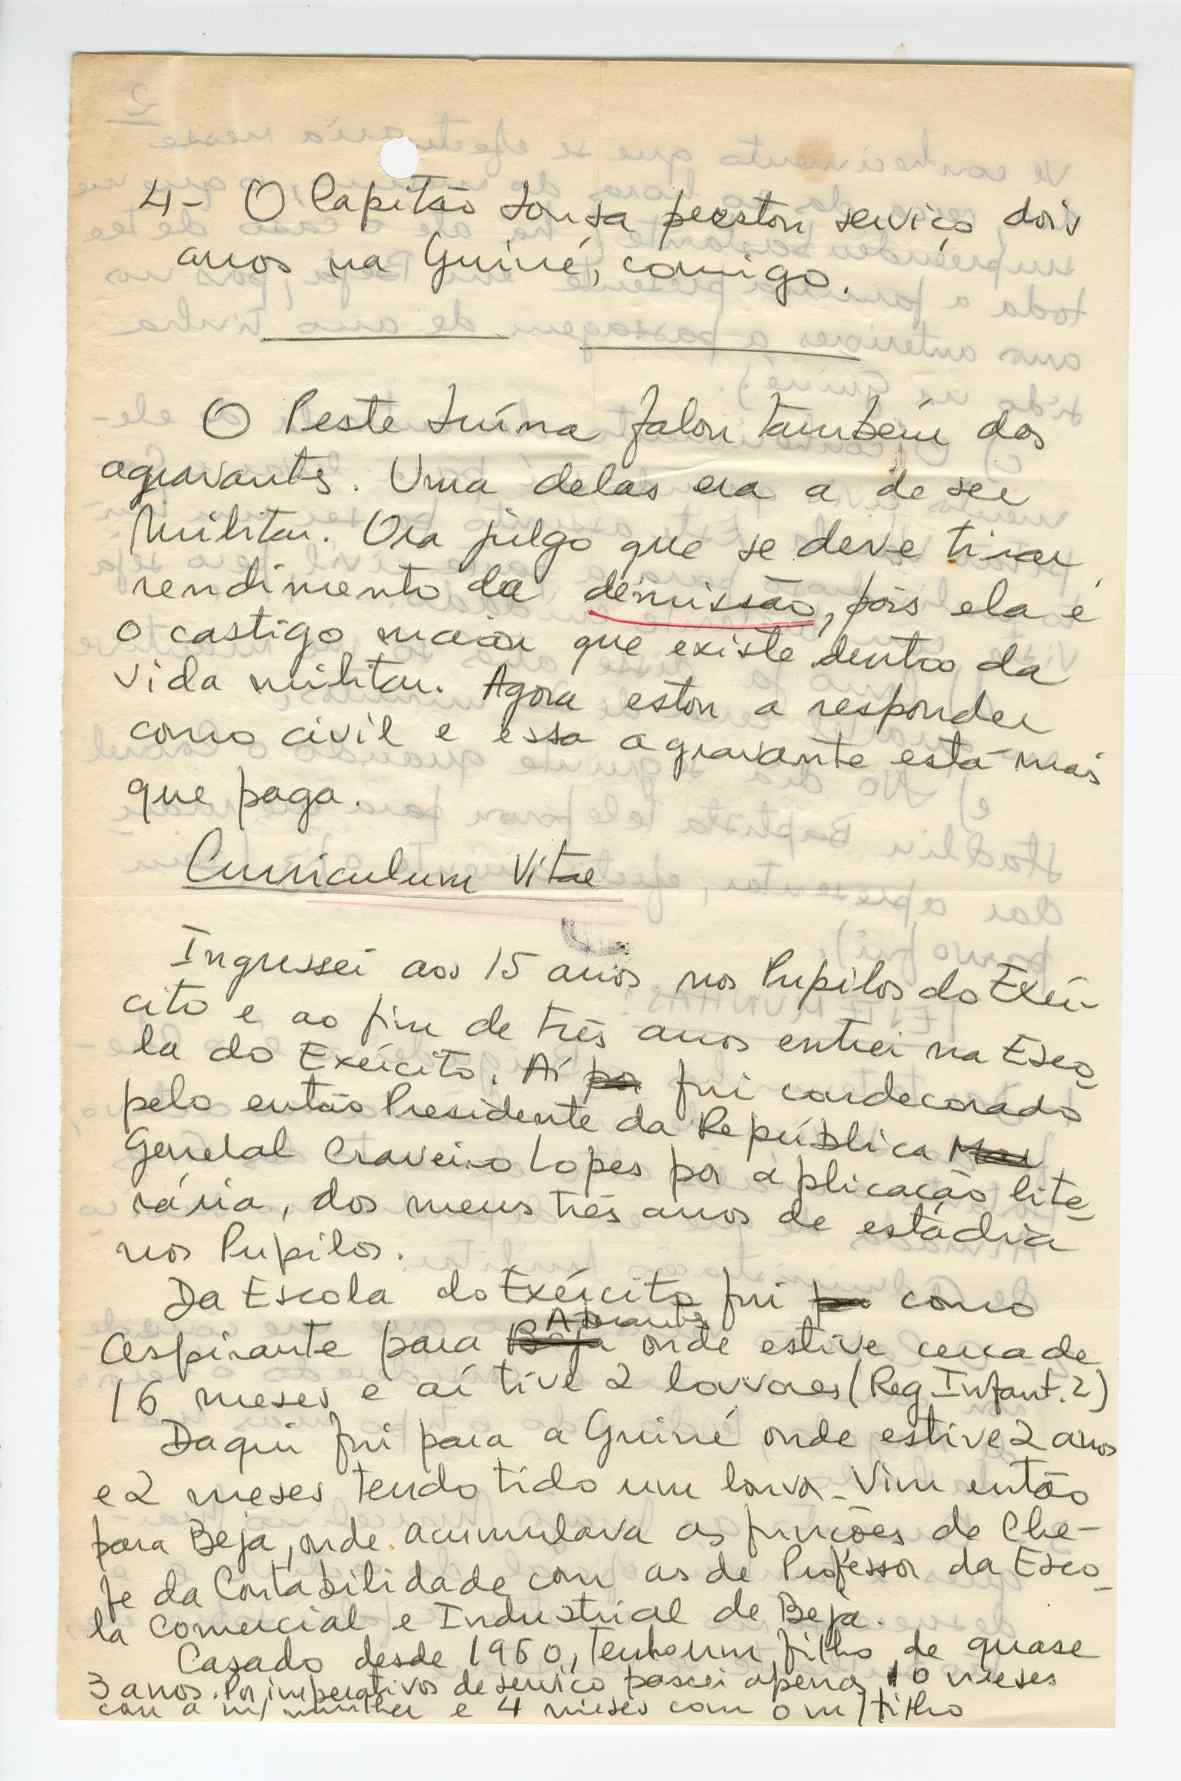 4- O Capitão Sousa prestou serviço dois
anos na Guiné, comigo.
O Peste Suína falou também dos
agravantes. Uma delas era a de ser
Militar. Ora julgo que se deve tirar
rendimento da demissão, pois ela é
o castigo maior que existe dentro da
vida militar. Agora estou a responder
como civil e essa agravante está mais
que paga.
Curriculum Vitae
Ingressei aos 15 anos nos Pupilos do Exér-
cito e ao fim de três anos entrei na Esco-
la do Exército. Aí fui condecorado
pelo então Presidente da República
General Craveiro Lopes por aplicação lite-
rária, dos meus três anos de estádia
nos Pupilos.
Da Escola do Exército fui como
Aspirante para Beja Abrantes onde estive cerca de
16 meses e aí tive 2 louvores (Reg. Infant. 2)
Daqui fui para a Guiné onde estive 2 anos
e 2 meses tendo tido um louvor. Vim então
para Beja, onde acumulava as funções de Che-
fe da Contabilidade com as de Professor da Esco-
la Comercial e Industrial de Beja.
Casado desde 1960, tenho um filho de quase
3 anos. Por imperativos de serviço passei apenas 10 meses
com a m/ mulher e 4 meses com o m/ filho